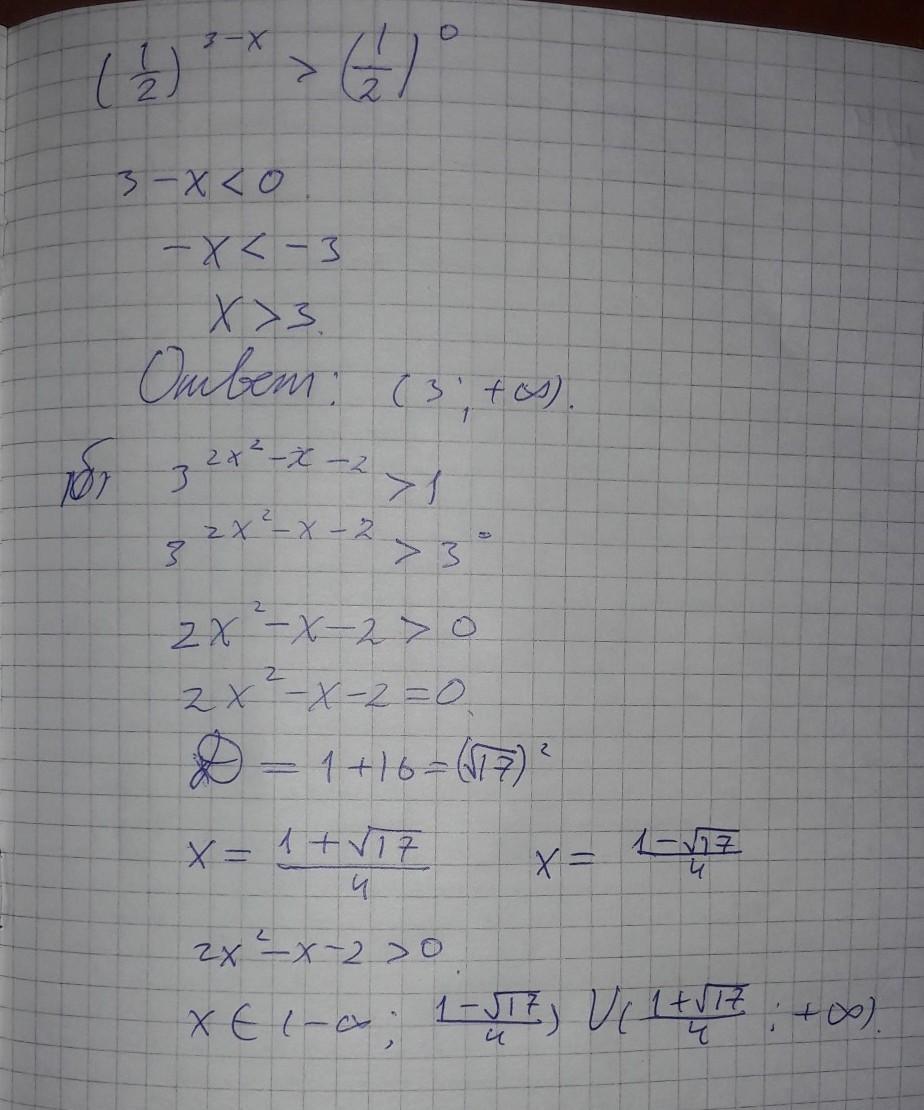 (1/2)^(3-x) > (1/2)^0
3-x<0.
-x<-3
x>3.
Ответ: (3; +∞).
б) 3^(2x²-x-2) >1
3^(2x²-x-2) > 3^0
2x²-x-2 > 0
2x²-x-2=0.
D = 1+16=(√17)²
x = (1+√17)/4 x = (1-√17)/4
2x²-x-2>0.
x ∈ (-∞; (1-√17)/4) ∪ ((1+√17)/4; +∞).